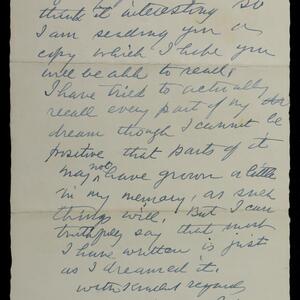 think it interesting so
I am sending you a
copy which I hope you
will be able to read.
I have tried to actually
recall every part of my
dream though I cannot be
positive that parts of it
may not have grown a little
in my memory, as such
things will. But I can
truthfully say that most
I have written is just
as I dreamed it.
with kindest regards